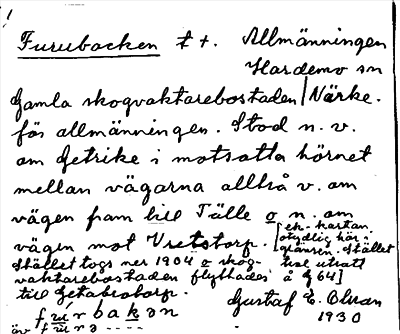 Furubacken t +. Allmänningen
Hardemo sn
Gamla skogvaktarebostaden | Närke.
för allmänningen. Stod n. v.
om Getrike i motsatta hörnet
mellan vägarna alltså v. om
vägen fram till Tälle o n. om
vägen mot Vretstorp. [ek. kartan.
otydlig här.
gränsen. Stället
Stället togs ner 1904 o skog-
vaktarebostaden flyttades å G 64]
till Getabrotorp.
Gustaf E. Olsson
1930